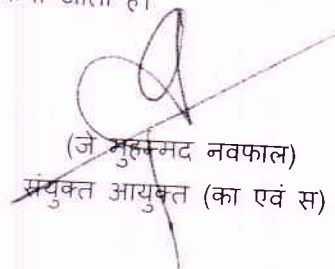 जाता है।
(जे मुहम्मद नवफाल)
संयुक्त आयुक्त (का एवं स)